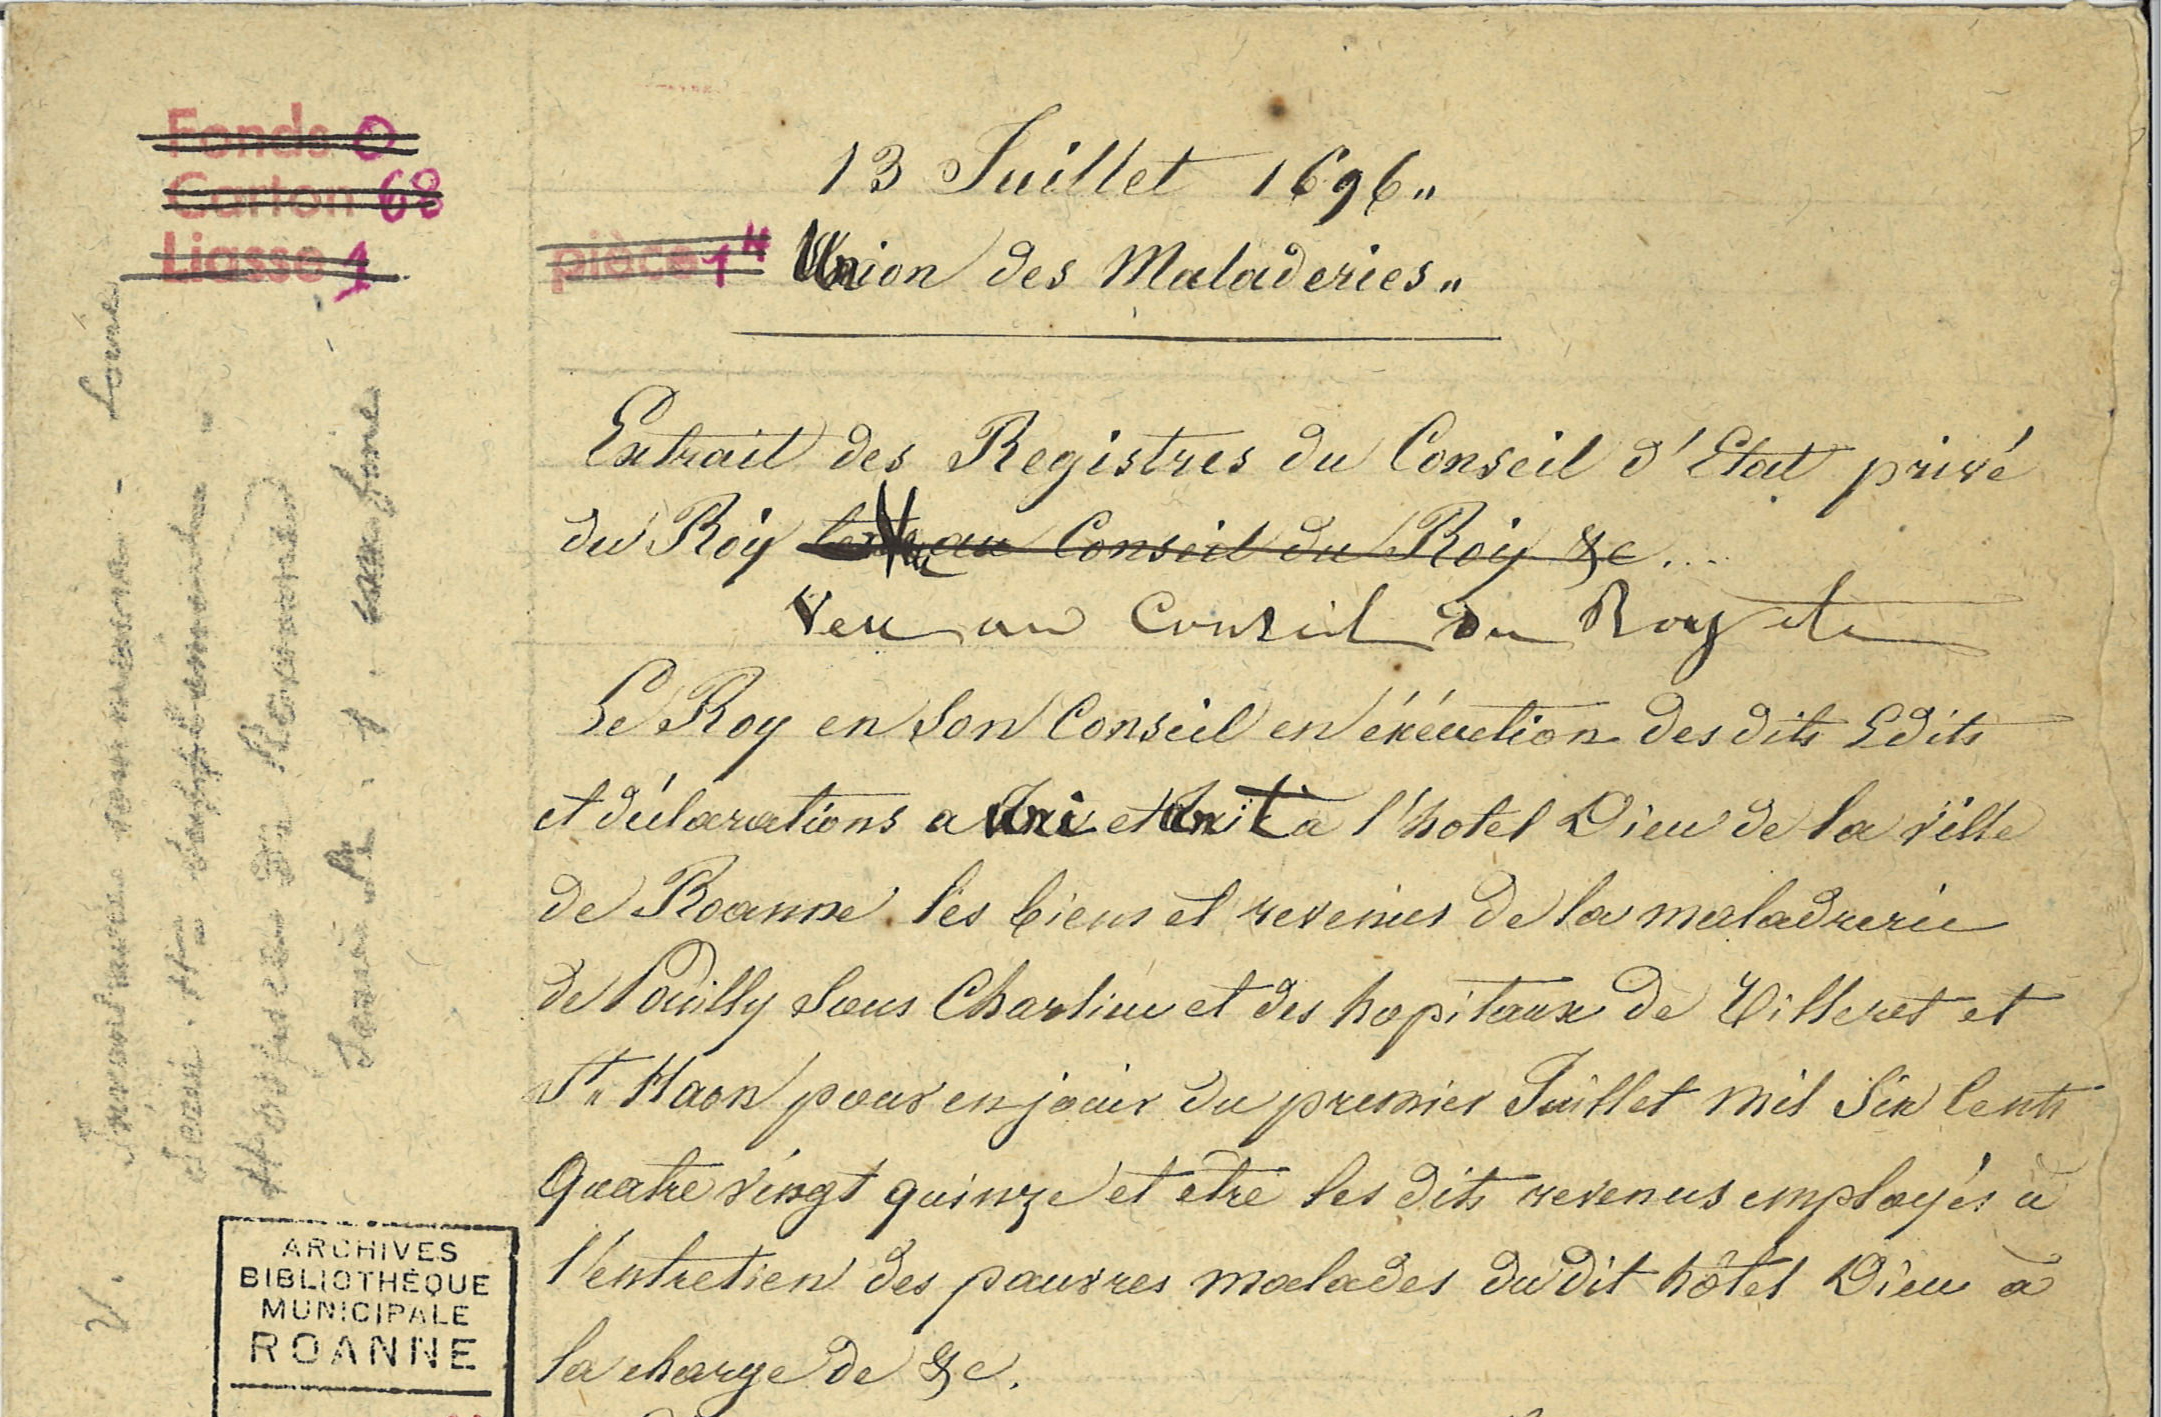 Fonds 0
Carton 68
Liasse 1
13 Juillet 1696 "
pièce 1 Union des Maladeries "
Extrait des Registres du Conseil d'Etat privé
du Roy au Conseil du Roy &c...
Veu au Conseil du Roy etc
Le Roy en Son Conseil en éxécution des dits Edits
et déclarations a Uni et Unit à l'hotel Dieu de la ville
de Roanne les biens et revenus de la maladrerie
de Pouilly Sous Charlieu et des hopitaux de Villeret et
St Haon pour en jouir du premier Juillet mil Six Cents
Quatre vingt quinze et etre les dits revenus employés à
l'entretien des pauvres malades du dit hôtel Dieu à
la charge de &c.
V. Inventaire sommaire - Loire
Serie H supplément -
Hospices de Roanne
ARCHIVES
BIBLIOTHÈQUE
MUNICIPALE
ROANNE